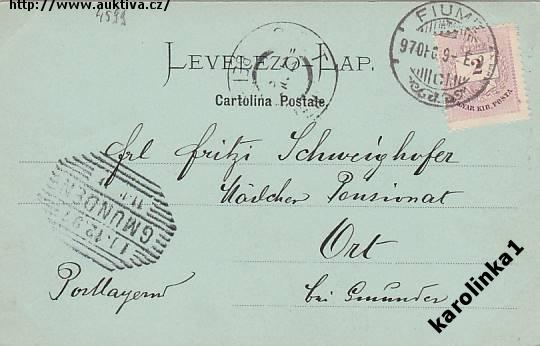 http://www.auktiva.cz/
4599
FIUME
LEVELEZŐ-LAP.
Cartolina Postale.
2
MAGYAR KIR. POSTA
Frl Fritzi Schweighofer
Mädchen Pensionat
GMUNDEN
11.12.97
Ort
bei Gmunden
karolinka1